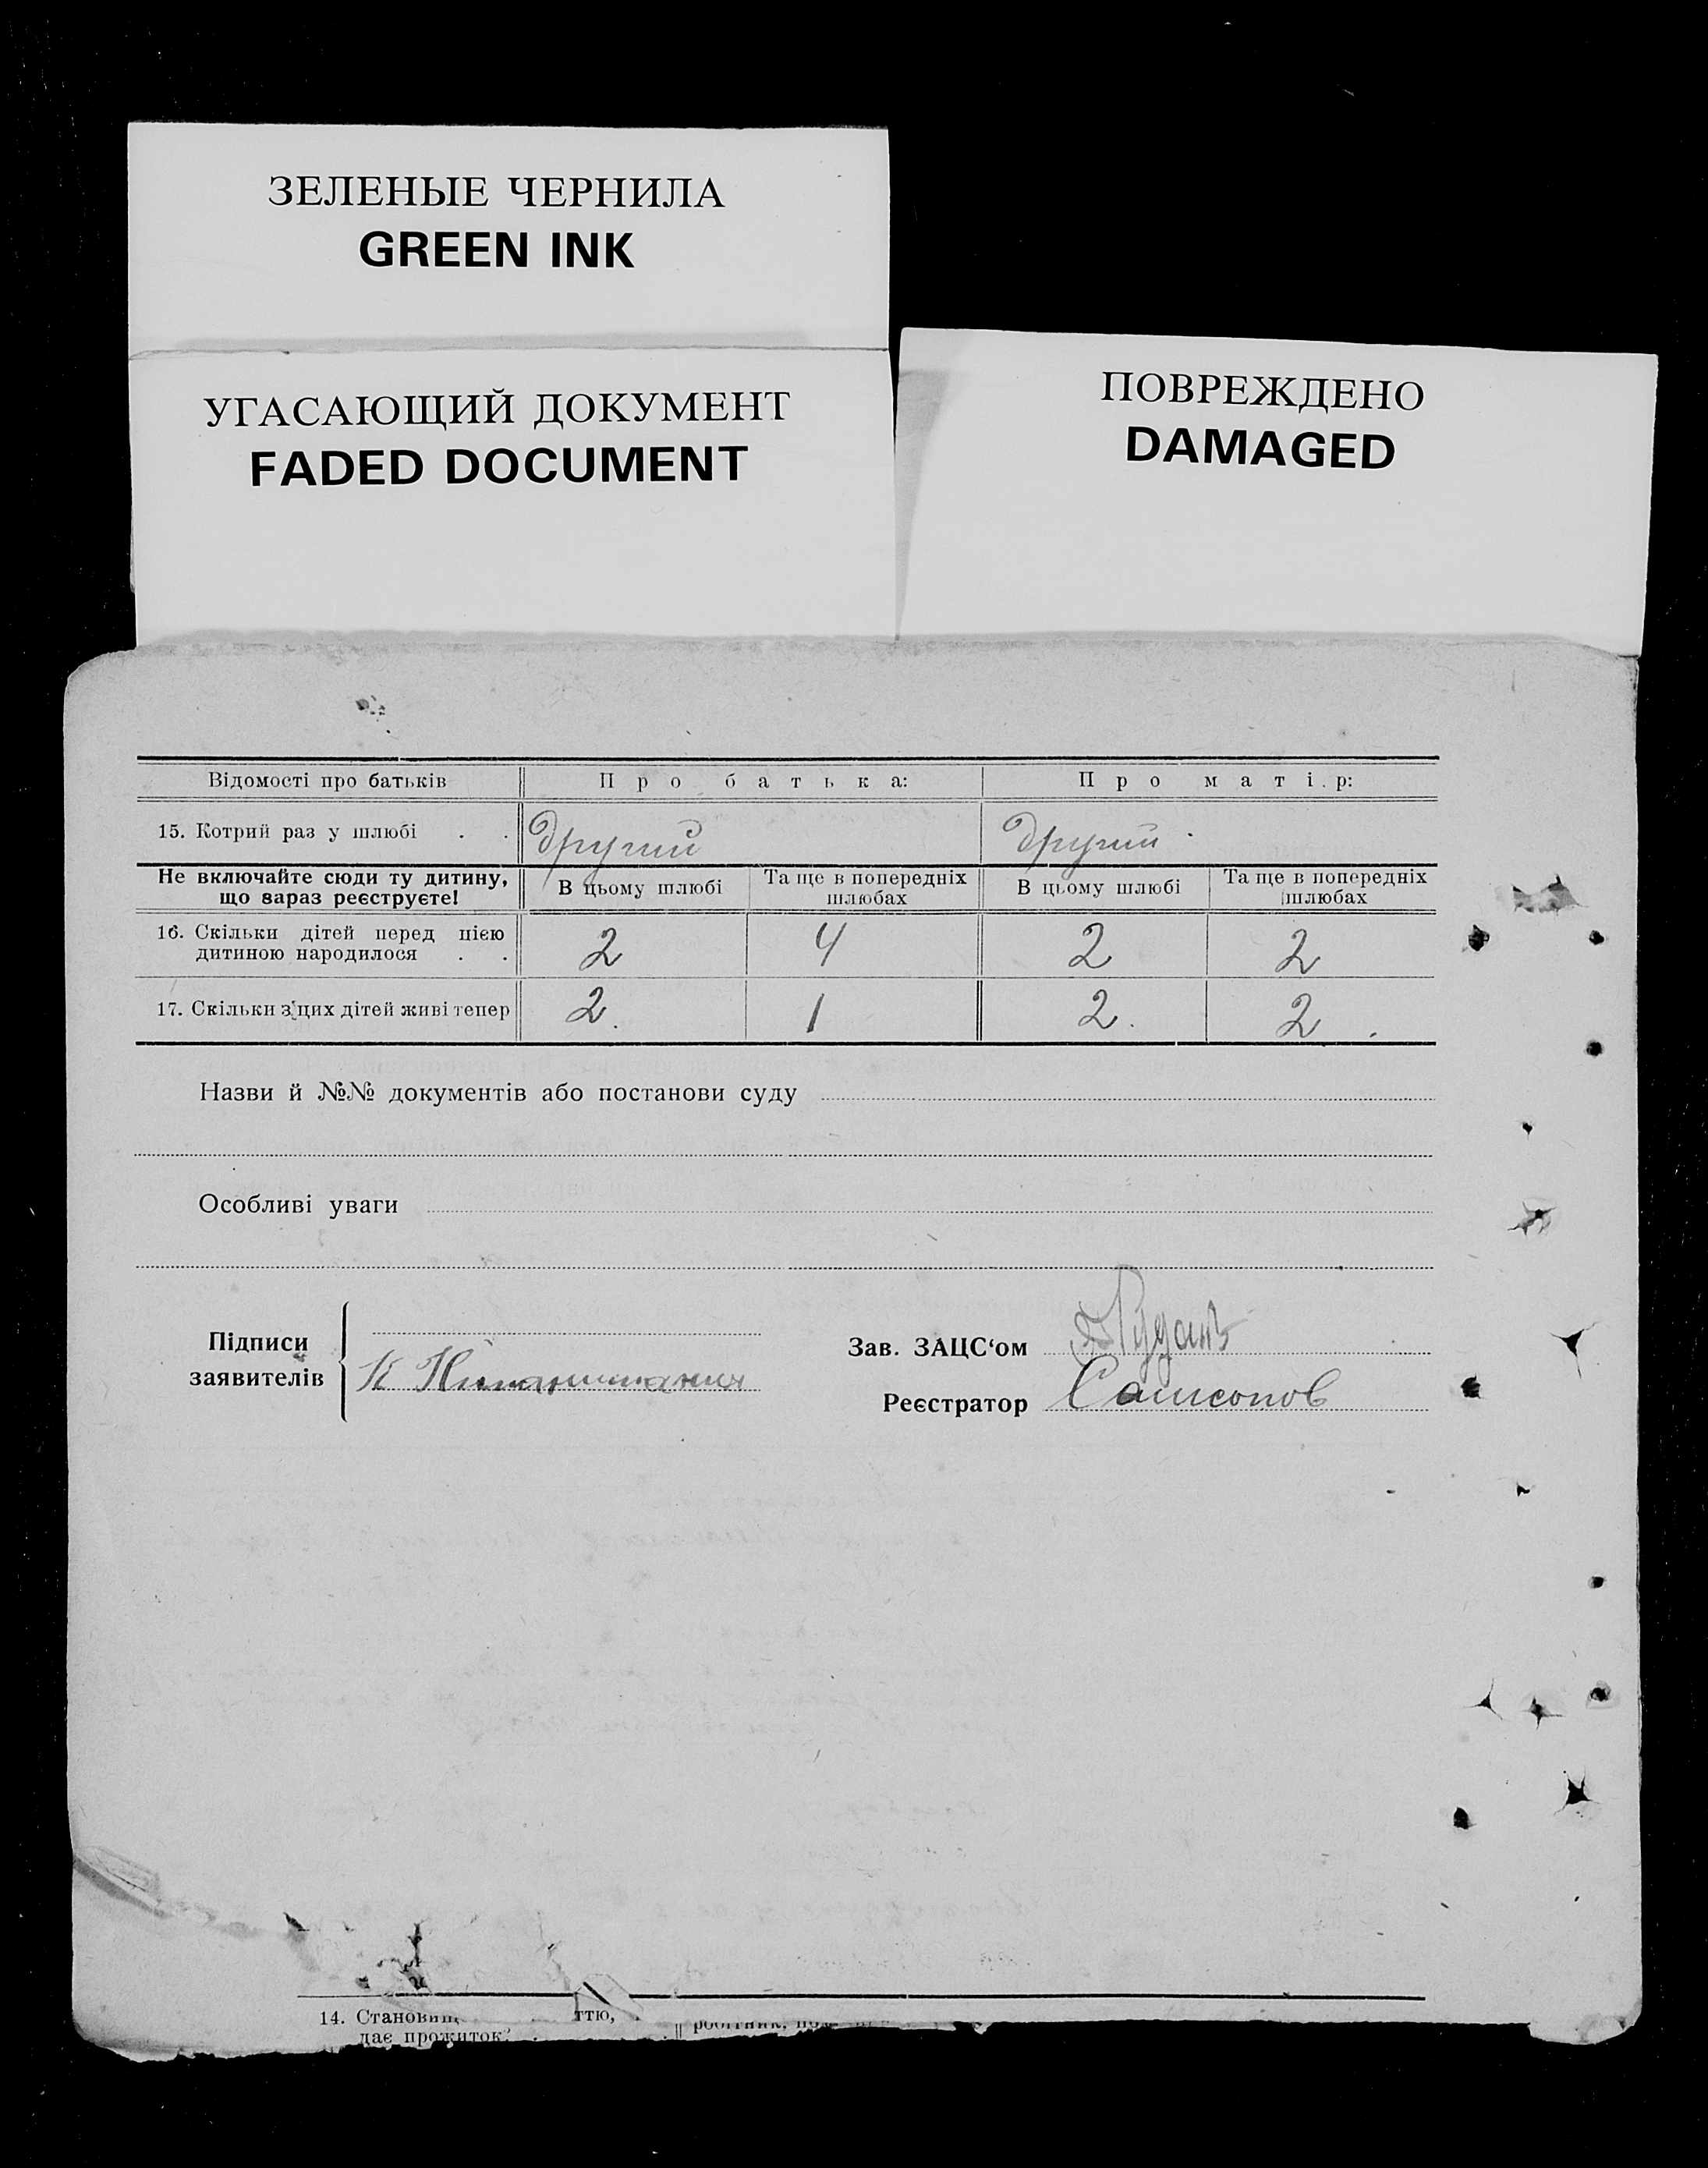 ЗЕЛЕНЫЕ ЧЕРНИЛА
GREEN INK
УГАСАЮЩИЙ ДОКУМЕНТ
FADED DOCUMENT
ПОВРЕЖДЕНО
DAMAGED
Відомості про батьків Про батька: Про матір:
15. Котрий раз у шлюбі . . Другий Другий
Не включайте сюди ту дитину, що зараз реєструєте! В цьому шлюбі Та ще в попередніх шлюбах В цьому шлюбі Та ще в попередніх шлюбах
16. Скільки дітей перед цією дитиною народилося . . 2 4 2 2
17. Скільки з цих дітей живі тепер 2. 1 2. 2.
Назви й №№ документів або постанови суду
Особливі уваги
Підписи заявителів К
Зав. ЗАЦС‘ом
Реєстратор Самсонов
14. ттю,
дає прожиток